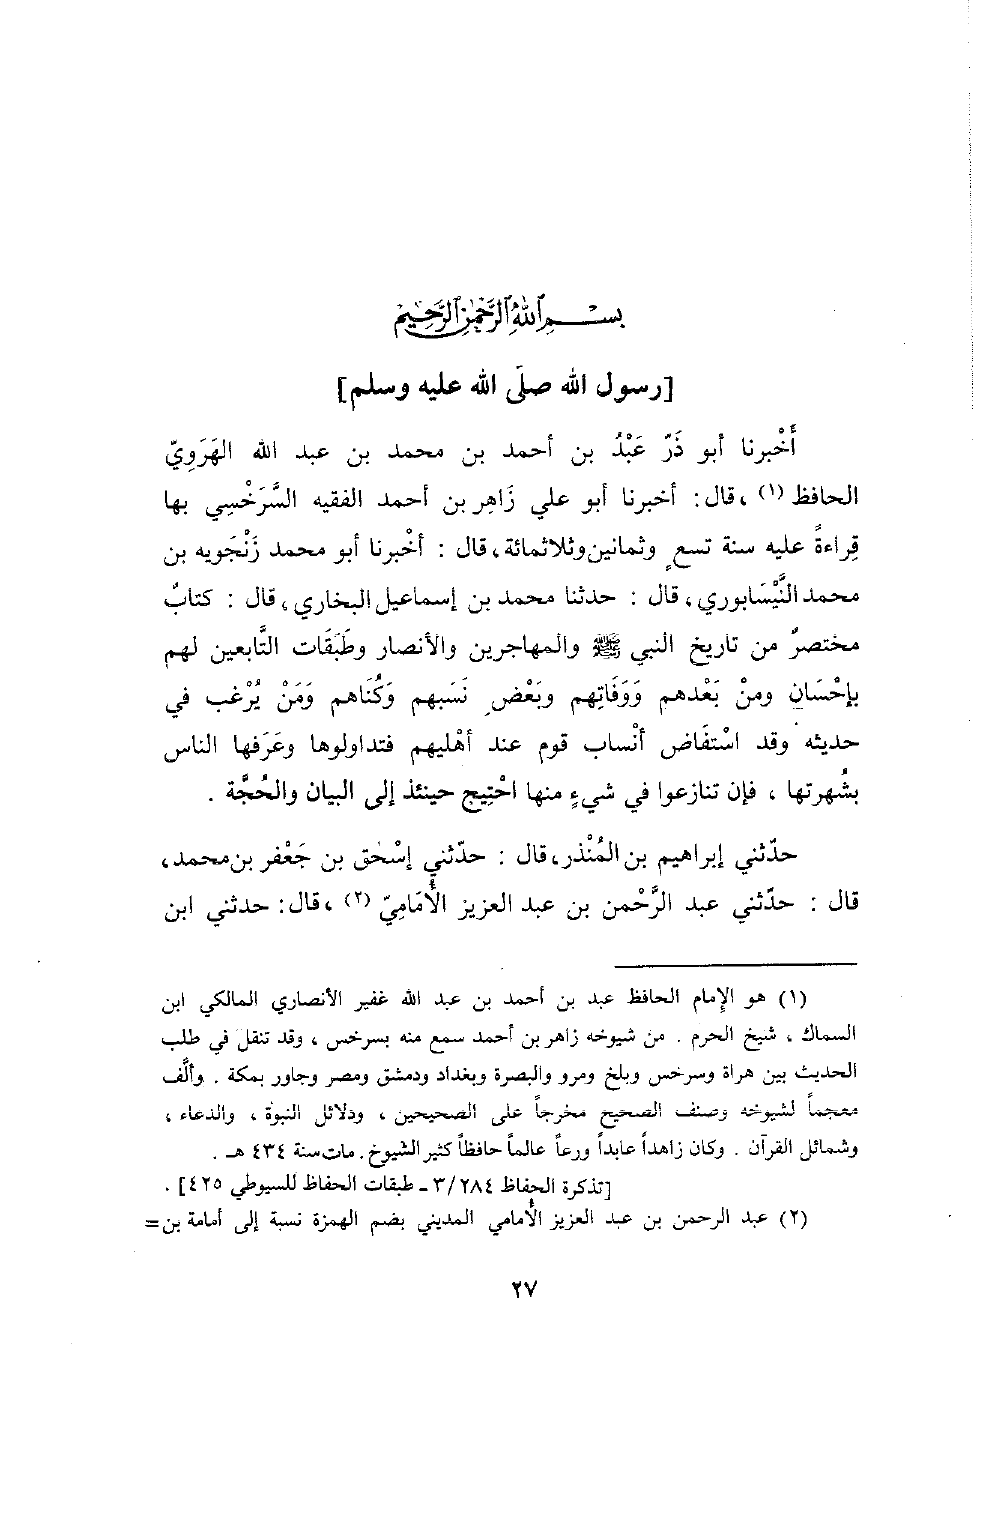 بسم الله الرحمن الرحيم
[رسول الله صلّى الله عليه وسلم]
أَخْبرنا أبو ذَرّ عَبْدُ بن أحمد بن محمد بن عبد الله الهَرَوِيّ
الحافظ (١) ، قال : أخبرنا أبو علي زَاهِر بن أحمد الفقيه السَّرَخْسِي بها
قِراءةً عليه سنة تسعٍ وثمانين وثلاثمائة ، قال : أخْبرنا أبو محمد زَنْجَويه بن
محمد النَّيْسَابوري ، قال : حدثنا محمد بن إسماعيل البخاري ، قال : كتابٌ
مختصرٌ من تاريخ النبي ﷺ والمهاجرين والأنصار وطَبَقَات التَّابعين لهم
بإحْسَانٍ ومنْ بَعْدهم وَوَفَاتِهم وبَعْضِ نَسَبهم وَكُنَاهم وَمَنْ يُرْغب في
حديثه وقد اسْتفَاض أنْساب قوم عند أهْليهم فتداولوها وعَرَفها الناس
بشُهرتها ، فإن تنازعوا في شيءٍ منها احْتِيج حينئذ إلى البيان والحُجَّة .
حدّثني إبراهيم بن المُنْذر ، قال : حدّثني إسْحٰق بن جَعْفر بن محمد ،
قال : حدّثني عبد الرَّحْمن بن عبد العزيز الأُمَامِيّ (٢) ، قال : حدثني ابن
(١) هو الإمام الحافظ عبد بن أحمد بن عبد الله غفير الأنصاري المالكي ابن
السماك ، شيخ الحرم . من شيوخه زاهر بن أحمد سمع منه بسرخس ، وقد تنقل في طلب
الحديث بين هراة وسرخس وبلخ ومرو والبصرة وبغداد ودمشق ومصر وجاور بمكة . وألَّف
معجماً لشيوخه وصنف الصحيح مخرجاً على الصحيحين ، ودلائل النبوة ، والدعاء ،
وشمائل القرآن . وكان زاهداً عابداً ورعاً عالماً حافظاً كثير الشيوخ . مات سنة ٤٣٤ هـ .
[تذكرة الحفاظ ٣/٢٨٤ ـ طبقات الحفاظ للسيوطي ٤٢٥] .
(٢) عبد الرحمن بن عبد العزيز الأُمامي المديني بضم الهمزة نسبة إلى أمامة بن =
٢٧